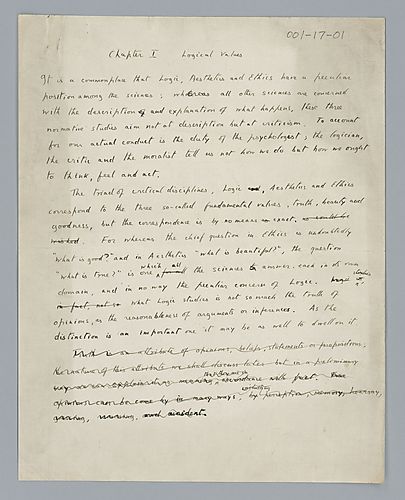 001-17-01
Chapter I Logical Values
It is a commonplace that Logic, Aesthetics and Ethics have a peculiar
position among the sciences; whereas all other sciences are concerned
with the description and explanation of what happens, these three
normative studies aim not at description but at criticism. To account
for our actual conduct is the duty of the psychologist; the logician,
the critic and the moralist tell us not how we do but how we ought
to think, feel and act.
The triad of critical disciplines, Logic, Aesthetics and Ethics
correspond to the three so-called fundamental values, truth, beauty and
goodness, but the correspondence is by no means exact,
For whereas the chief question in Ethics is undoubtedly
"What is good?" and in Aesthetics "what is beautiful?", the question
"what is true?" is one which all the sciences answer, each in its own
domain, and in no way the peculiar concern of Logic.
in fact, not so What Logic studies is not so much the truth of
opinions, as the reasonableness of arguments or inferences. As the
distinction is an important one it may be as well to dwell on it.
Truth is an attribute of opinions, beliefs, statements or propositions;
the nature of this attribute we shall discuss later but in a preliminary
way we can explain its meaning, accordance with fact. True
opinions can be come by in many ways, by perception, memory, hearsay,
guessing, reasoning, and accident.